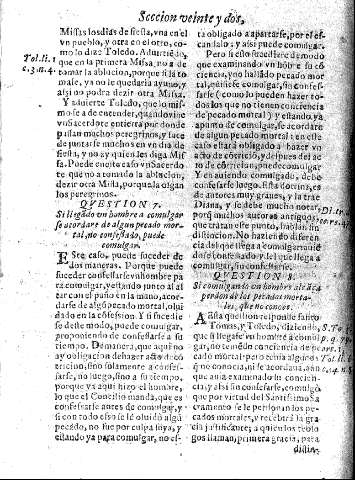 Seccion veinte y dos,
Missas los dias de fiesta, vna en el
vn pueblo, y otra en el otro, como
lo dize Toledo. Aduirtiedo,
que en la primera Missa, no a de
tomar la ablucion, porque si la to
male, ya no le quedaria ayuno, y
assi no podra dezir otra Missa.
Y aduierte Toledo, que lo mis-
mo se a de entender, quando viue
vn sacerdote en tierra por donde
passan muchos peregrinos, y suce
de juntarse muchos en vn dia de
fiesta, y no ay quien les diga Mis
sa. Puede en este caso vn sacerdo-
te que no a tomado la ablucion,
dezir otra Missa, porque la oigan
los peregrinos.
QVESTION 7.
Si llegado un hombre a comulgar
se acordare de algun pecado mor-
tal, no confessado, puede
comulgar.
Este caso, puede suceder de
dos maneras. Porque puede
suceder confessarse vn hombre pa
ra comulgar, y estando junto al al
tar con el paño en la mano, acor-
darse de algun pecado mortal, olui
dado en la confession. Y si sucedie
se deste modo, puede comulgar,
proponiendo de confessarse a su
tiempo. De manera, que aqui no
ay obligacion de hazer acto de co
tricion, sino solamente a confes-
sarse, no luego, sino a su tiempo,
porque ya aqui hizo el hombre,
lo que el Concilio manda, que es
confessarse antes de comulgar, y
si con todo esso se le oluidò algun
pecado, no fue por culpa suya, y
estando ya para comulgar, no es-
ta obligado a apartarse, por el es-
candalo: y assi puede comulgar.
Pero si esto sucediere de modo
que examinando vn hombre su co
ciencia, y no hallado pecado mor
tal, fuesse a comulgar, sin confes-
sarse (como lo pueden hazer todos
los que no tienen conciencia
de pecado mortal) y estando ya a
punto de comulgar, se acordare
de algun pecado mortal: en este
caso estará obligado a hazer vn
acto de cotricion, y despues del ac
to de cotricion, puede comulgar.
Y en auiendo comulgado, debe
confessarse luego. Esta doctrina, es
de autores muy graues, y la trae
Diana, y se debe mucho notar,
porq muchos autores antiguos,
que tratan este punto, hablan sin
distincion. No haziendo diferen-
cia del que llega a comulgar auien
dose confessado, y del que llega a
comulgar, sin confessarse.
QVESTION 8.
Si comulgando un hombre alcãça
perdon de los pecados morta-
les, que no conoce.
A esta question responde santo
Tomas, y Toledo, diziendo,
que si llegasse vn hombre a comul
gar, no teniendo conciencia de pe
cado mortal
que auia examinado su concien-
cia, y assi sin confessarse, comulgo,
que por virtud del Santissimo Sa
cramento se le perdonan los pe-
cados mortales, y recebirà la gra
cia justificante, a quien los teolo
gos llaman, primera gracia, para
distin-